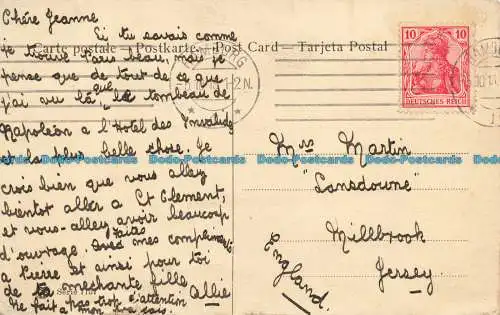 Chére Jeanne
Si tu savais comme
je trouve Paris beau, mais je
pense que de tout de ce que
j'ai vu là que le tombeau de
Napoleon a l'Hotel des Invalides
est la plus belle chose. Je
crois bien que vous alley
bientot aller a Ct Clement,
et vous-alley avoir beaucoup
d'ouvrage. faites mes compliments
a Pierre et ainsi pour toi
de ta mechante fille
Allie
Ne fait pas trop d'attention
a mon
Carte postale — Postkarte — Post Card — Tarjeta Postal
HAMBURG
1-2 N.
1
10 10
DEUTSCHES REICH
Mrs Martin
"Lansdowne"
Millbrook
Jersey
England
Bobbooks-Postcards Bobbooks-Postcards Bobbooks-Postcards